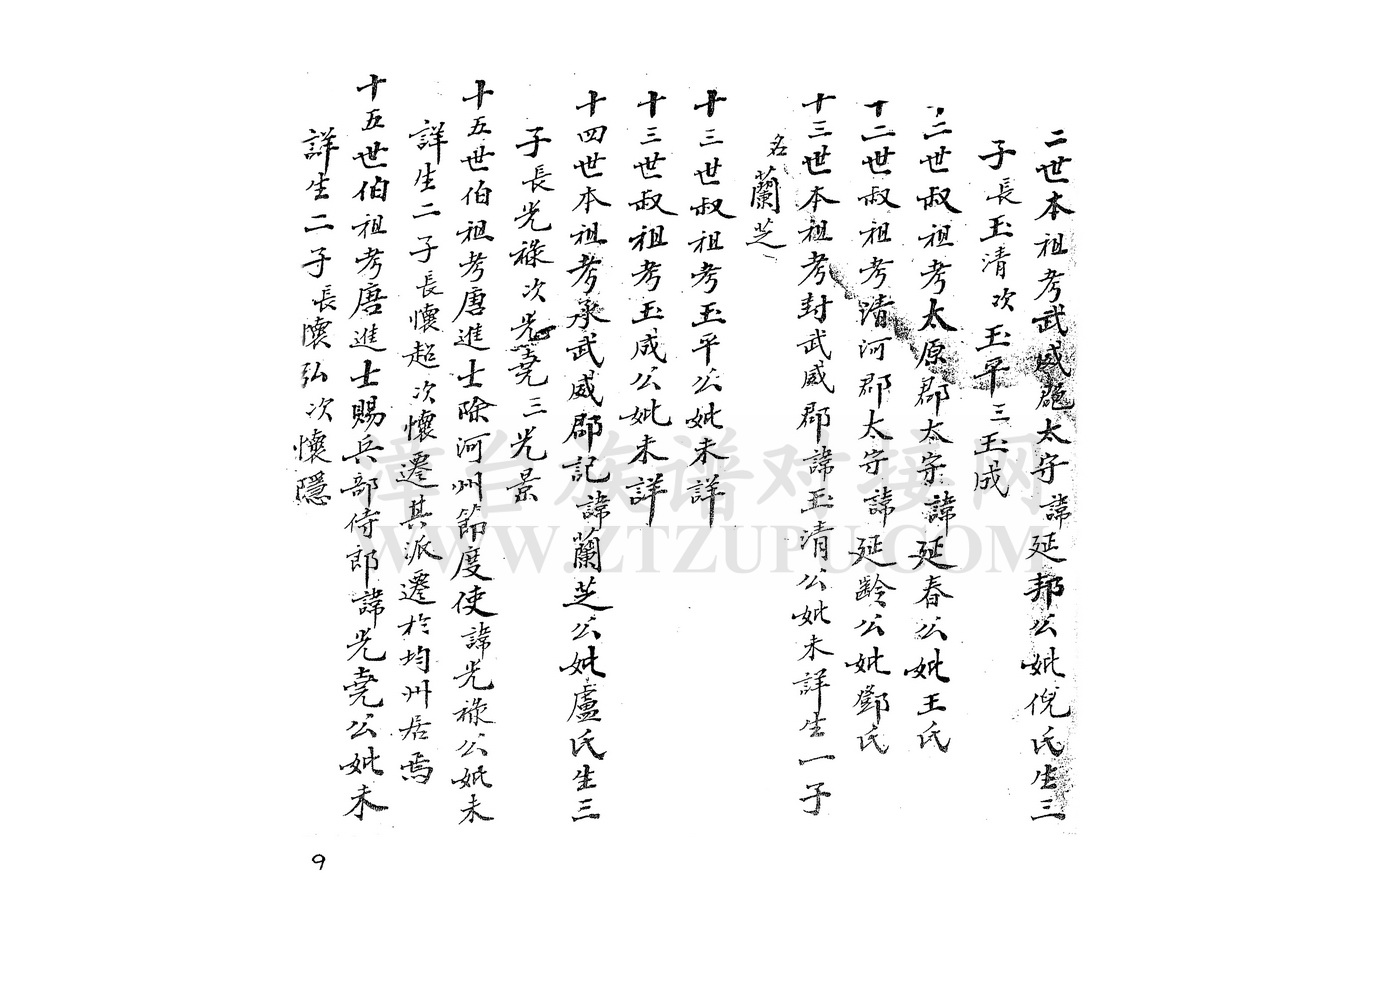 二世本祖考武威郡太守諱延邦公妣倪氏生三
子長玉清次玉平三玉成
二世叔祖考太原郡太守諱延春公妣王氏
十二世叔祖考清河郡太守諱延齡公妣鄧氏
十三世本祖考封武威郡諱玉清公妣未詳生一子
名蘭芝
十三世叔祖考玉平公妣未詳
十三世叔祖考玉成公妣未詳
十四世本祖考承武威郡記諱蘭芝公妣盧氏生三
子長光祿次光堯三光景
十五世伯祖考唐進士除河州節度使諱光祿公妣未
詳生二子長懷超次懷遷其派遷於均州居焉
十五世伯祖考唐進士賜兵部侍郎諱光堯公妣未
詳生二子長懷弘次懷隱
漳台族谱对接网
WWW.ZTZUPU.COM
9